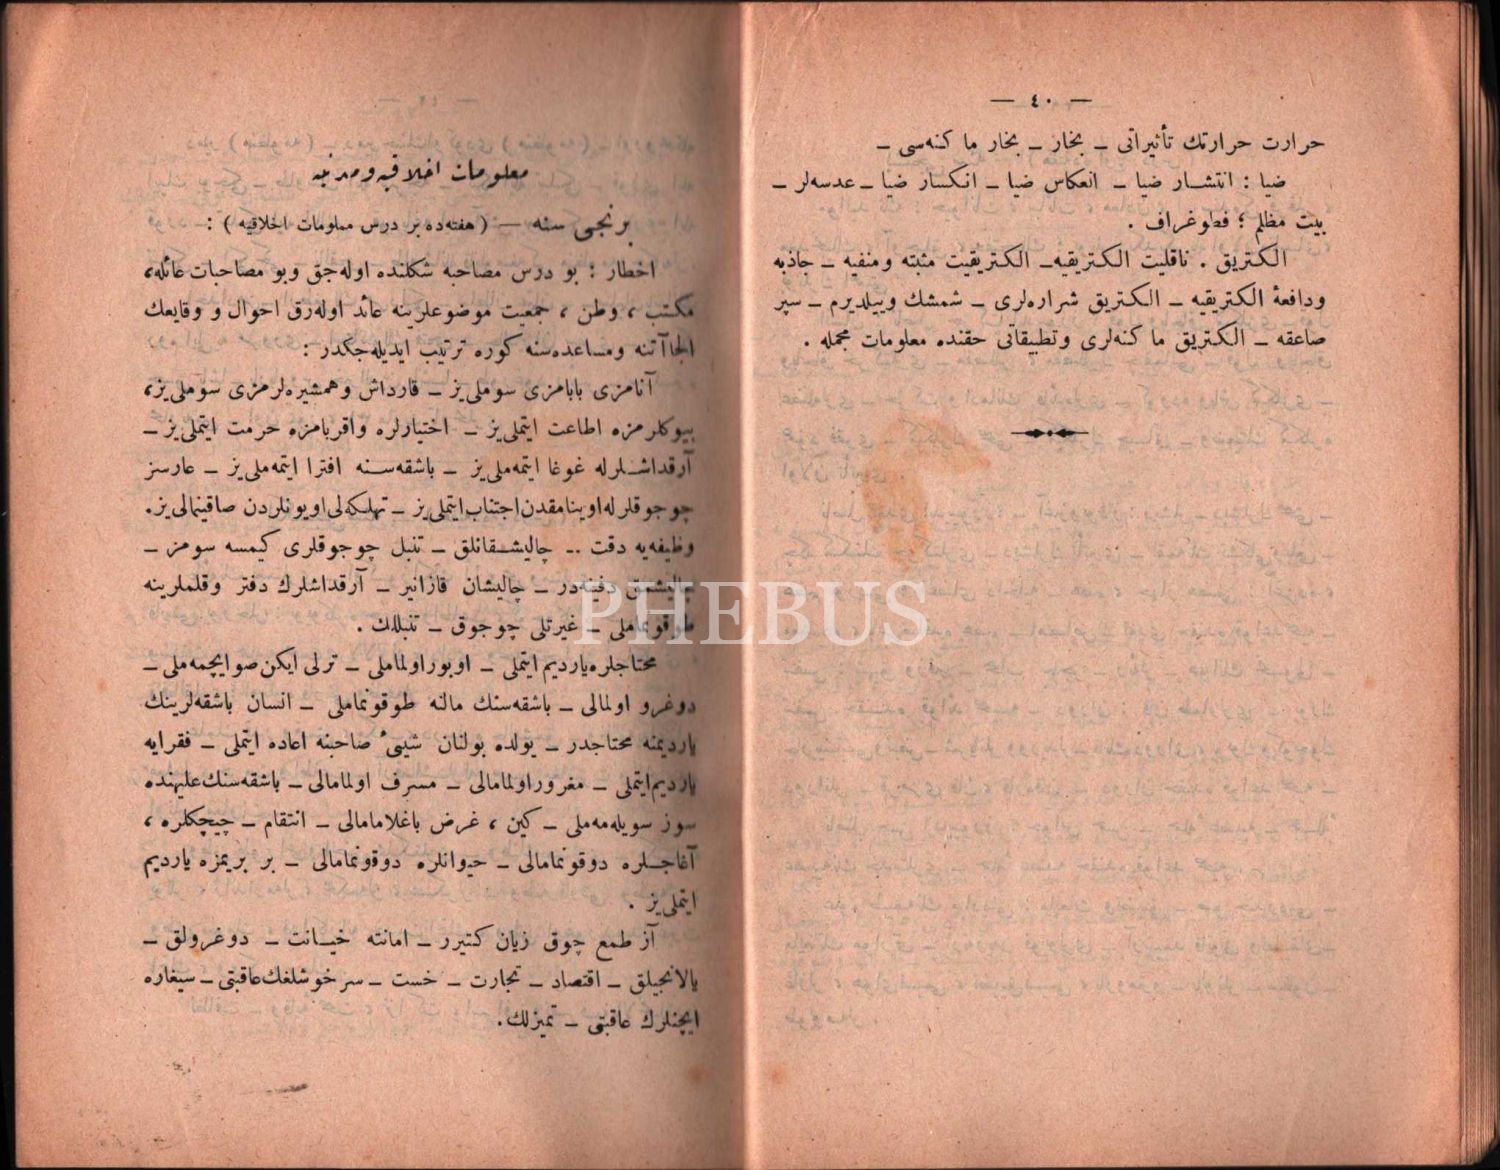 — ٤٠ —
حرارت حرارتك تأثيراتی ـ بخار ـ بخار ماكنه‌سی ـ
ضيا : انتشار ضيا ـ انعكاس ضيا ـ انكسار ضيا ـ عدسه‌لر ـ
بيت مظلم ؛ فطوغراف .
الكتريق . ناقليت الكتريقيه ـ الكتريقيت مثبته ومنفيه ـ جاذبه
ودافعهٔ الكتريقيه ـ الكتريق شراره‌لری ـ شمشك وييلديرم ـ سپر
صاعقه ـ الكتريق ماكنه‌لری وتطبيقاتی حقنده معلومات مجمله .
معلومات اخلاقيه ومدنيه
برنجی سنه — ( هفته‌ده بر درس معلومات اخلاقيه ) :
اخطار : بو درس مصاحبه شكلنده اوله‌جق وبو مصاحبات عائله،
مكتب ، وطن ، جمعيت موضوعلرينه عائد اوله‌رق احوال و وقايعك
الجاآتنه ومساعده‌سنه كوره ترتيب ايديله‌جكدر :
آنامزی بابامزی سوملی‌يز ـ قارداش وهمشيره‌لرمزی سوملی‌يز،
بيوكلرمزه اطاعت ايتملی‌يز ـ اختيارلره واقربامزه حرمت ايتملی‌يز ـ
آرقداشلرله غوغا ايتمه‌ملی‌يز ـ باشقه‌سنه افترا ايتمه‌ملی‌يز ـ عارسز
چوجوقلرله اوينامقدن اجتناب ايتملی‌يز ـ تهلكه‌لی اويونلردن صاقينمالی‌يز.
وظيفه‌يه دقت .. چاليشقانلق ـ تنبل چوجوقلری كيمسه سومز ـ
چاليشمق دفنه‌در ـ چاليشان قازانير ـ آرقداشلرك دفتر وقلملرينه
طوقونماملی ـ غيرتلی چوجوق ـ تنبللك .
محتاجلره يارديم ايتملی ـ اوبور اولماملی ـ ترلی ايكن صو ايچمه‌ملی ـ
دوغرو اولمالی ـ باشقه‌سنك مالنه طوقونماملی ـ انسان باشقه‌لرينك
يارديمنه محتاجدر ـ يولده بولنان شيئی صاحبنه اعاده ايتملی ـ فقرايه
يارديم ايتملی ـ مغرور اولمامالی ـ مسرف اولمامالی ـ باشقه‌سنك عليهنده
سوز سويله‌مه‌ملی ـ كين ، غرض باغلامامالی ـ انتقام ـ چيچكلره ،
آغاجلره دوقونمامالی ـ حيوانلره دوقونمامالی ـ بر بريمزه يارديم
ايتملی‌يز .
آز طمع چوق زيان كتيرر ـ امانته خيانت ـ دوغرولق ـ
يالانجيلق ـ اقتصاد ـ تجارت ـ خست ـ سرخوشلغك عاقبتی ـ سيغاره
ايچنلرك عاقبتی ـ تميزلك.
PHEBUS